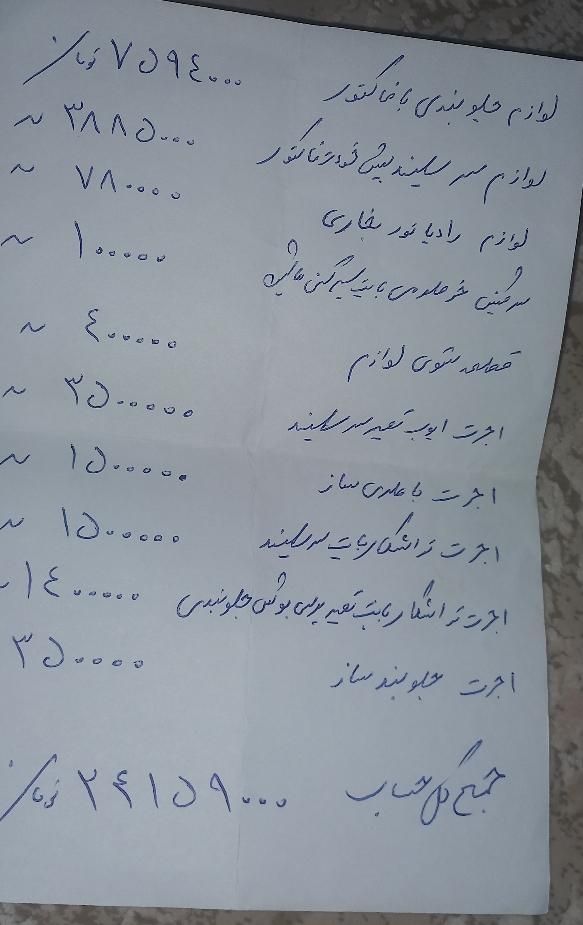 لوازم جلوبندی با فاکتور ۷۵۹۴۰۰۰ تومان
لوازم سر سیلندر پیش خودت فاکتور ۳۸۸۵۰۰۰ ~
لوازم رادیاتور بخاری ۷۸۰۰۰۰ ~
سرکشی بابت ۱۰۰۰۰۰ ~
قطعه شوی لوازم ۴۰۰۰۰۰ ~
اجرت ایوب تعمیر سر سیلندر ۳۵۰۰۰۰۰ ~
اجرت باطری ساز ۱۵۰۰۰۰۰ ~
اجرت تراشکار بابت سر سیلندر ۱۵۰۰۰۰۰ ~
اجرت تراشکار بابت تعمیر پرس بوش جلوبندی ۱۴۰۰۰۰۰ ~
اجرت جلوبند ساز ۳۵۰۰۰۰۰
جمع کل حساب ۲۴۱۵۹۰۰۰ تومان